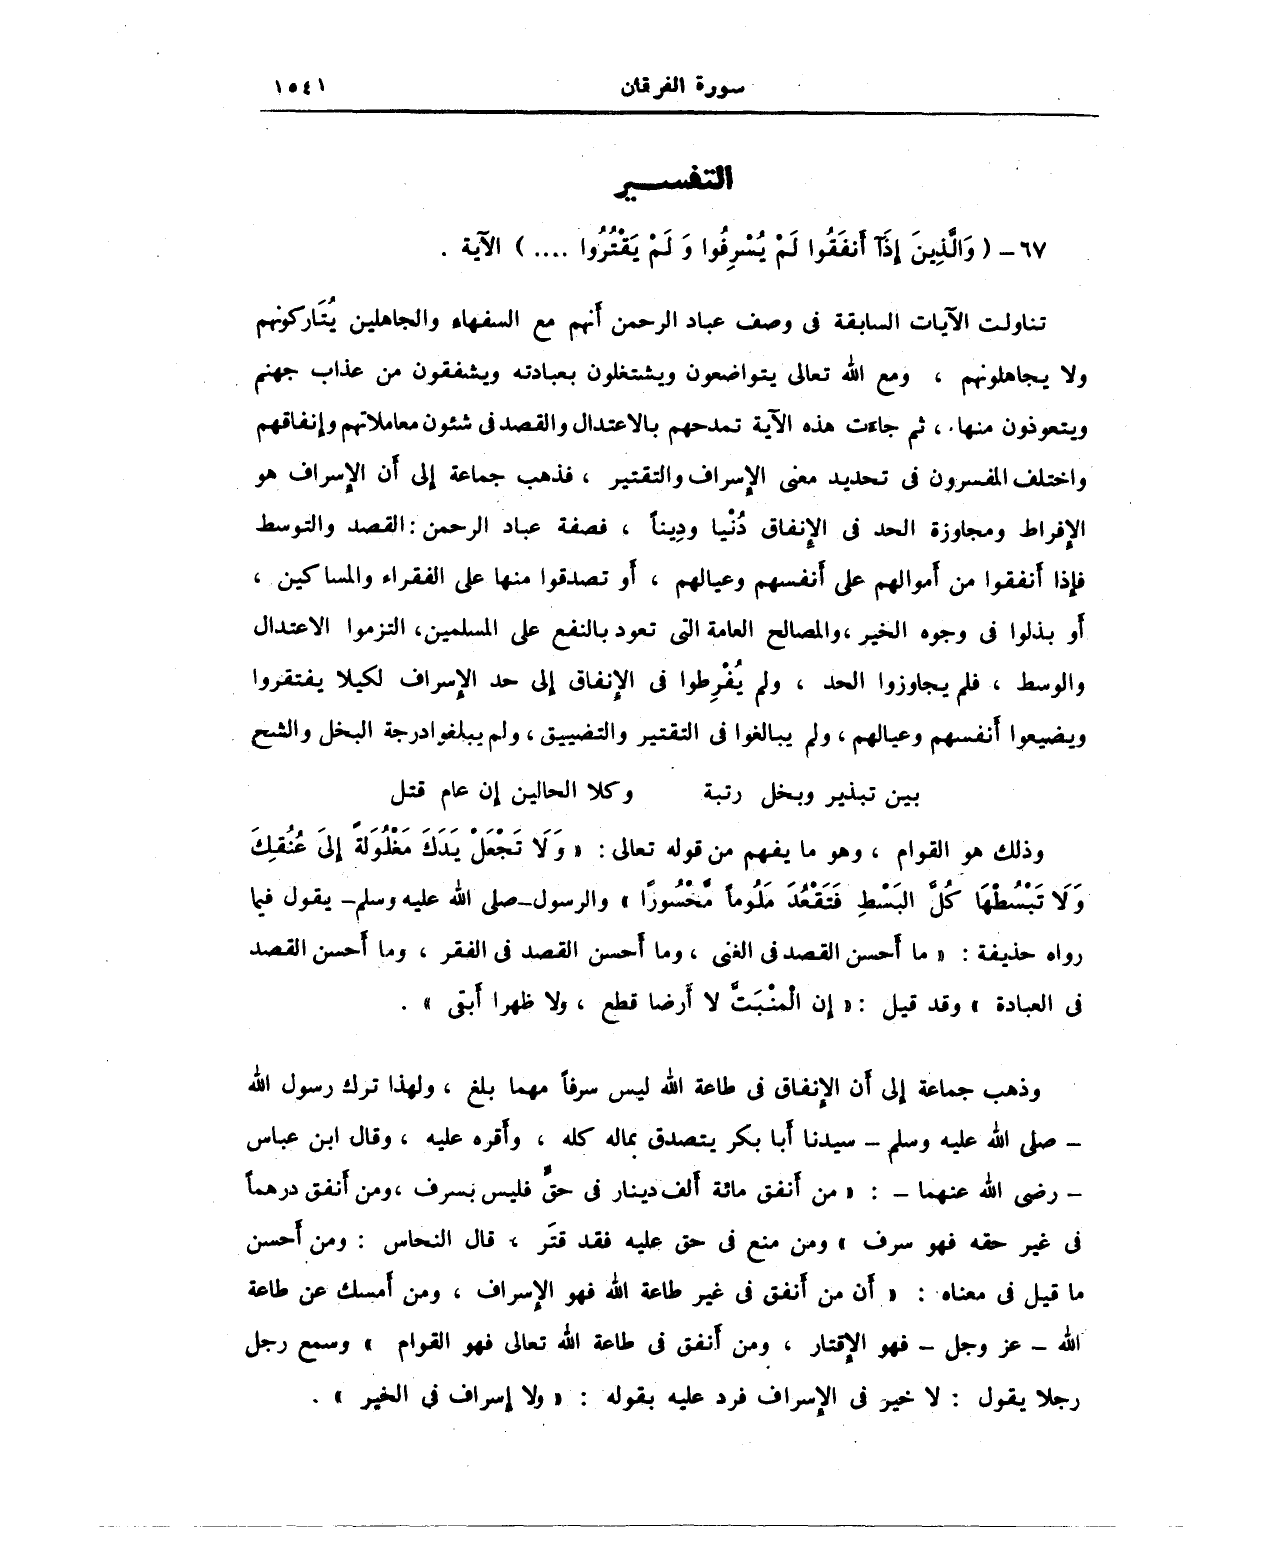 سورة الفرقان
١٥٤١
التفسير
٦٧ - ( وَالَّذِينَ إِذَآ أَنفَقُوا لَمْ يُسْرِفُوا وَ لَمْ يَقْتُرُوا .... ) الآية .
تناولت الآيات السابقة فى وصف عباد الرحمن أنهم مع السفهاء والجاهلين يُتَاركونهم
ولا يجاهلونهم ، ومع الله تعالى يتواضعون ويشتغلون بعبادته ويشفقون من عذاب جهنم
ويتعوذون منها ، ثم جاءت هذه الآية تمدحهم بالاعتدال والقصد فى شئون معاملاتهم وإنفاقهم
واختلف المفسرون فى تحديد معنى الإسراف والتقتير ، فذهب جماعة إلى أن الإسراف هو
الإفراط ومجاوزة الحد فى الإنفاق دُنْيا ودِيناً ، فصفة عباد الرحمن : القصد والتوسط
فإذا أنفقوا من أموالهم على أنفسهم وعيالهم ، أو تصدقوا منها على الفقراء والمساكين ،
أو بذلوا فى وجوه الخير ، والمصالح العامة التى تعود بالنفع على المسلمين، التزموا الاعتدال
والوسط ، فلم يجاوزوا الحد ، ولم يُفْرِطوا فى الإنفاق إلى حد الإسراف لكيلا يفتقروا
ويضيعوا أنفسهم وعيالهم ، ولم يبالغوا فى التقتير والتضييق ، ولم يبلغوا درجة البخل والشح
بين تبذير وبخل رتبة وكلا الحالين إن عام قتل
وذلك هو القوام ، وهو ما يفهم من قوله تعالى : « وَلَا تَجْعَلْ يَدَكَ مَغْلُولَةً إِلَىَ عُنُقِكَ
وَلَا تَبْسُطْهَا كُلَّ البَسْطِ فَتَقْعُدَ مَلُوماً مَّحْسُورًا » والرسول - صلى الله عليه وسلم - يقول فيما
رواه حذيفة : « ما أحسن القصد فى الغنى ، وما أحسن القصد فى الفقر ، وما أحسن القصد
فى العبادة » وقد قيل : « إن الْمنْبَتَّ لا أرضا قطع ، ولا ظهرا أبقى » .
وذهب جماعة إلى أن الإنفاق فى طاعة الله ليس سرفاً مهما بلغ ، ولهذا ترك رسول الله
- صلى الله عليه وسلم - سيدنا أبا بكر يتصدق بماله كله ، وأقره عليه ، وقال ابن عباس
- رضى الله عنهما - : « من أنفق مائة ألف دينار فى حقٍّ فليس بسرف ، ومن أنفق درهماً
فى غير حقه فهو سرف » ومن منع فى حق عليه فقد قتَر ، قال النحاس : ومن أحسن
ما قيل فى معناه : « أن من أنفق فى غير طاعة الله فهو الإسراف ، ومن أمسك عن طاعة
الله - عز وجل - فهو الإقتار ، ومن أنفق فى طاعة الله تعالى فهو القوام » وسمع رجل
رجلا يقول : لا خير فى الإسراف فرد عليه بقوله : « ولا إسراف فى الخير » .